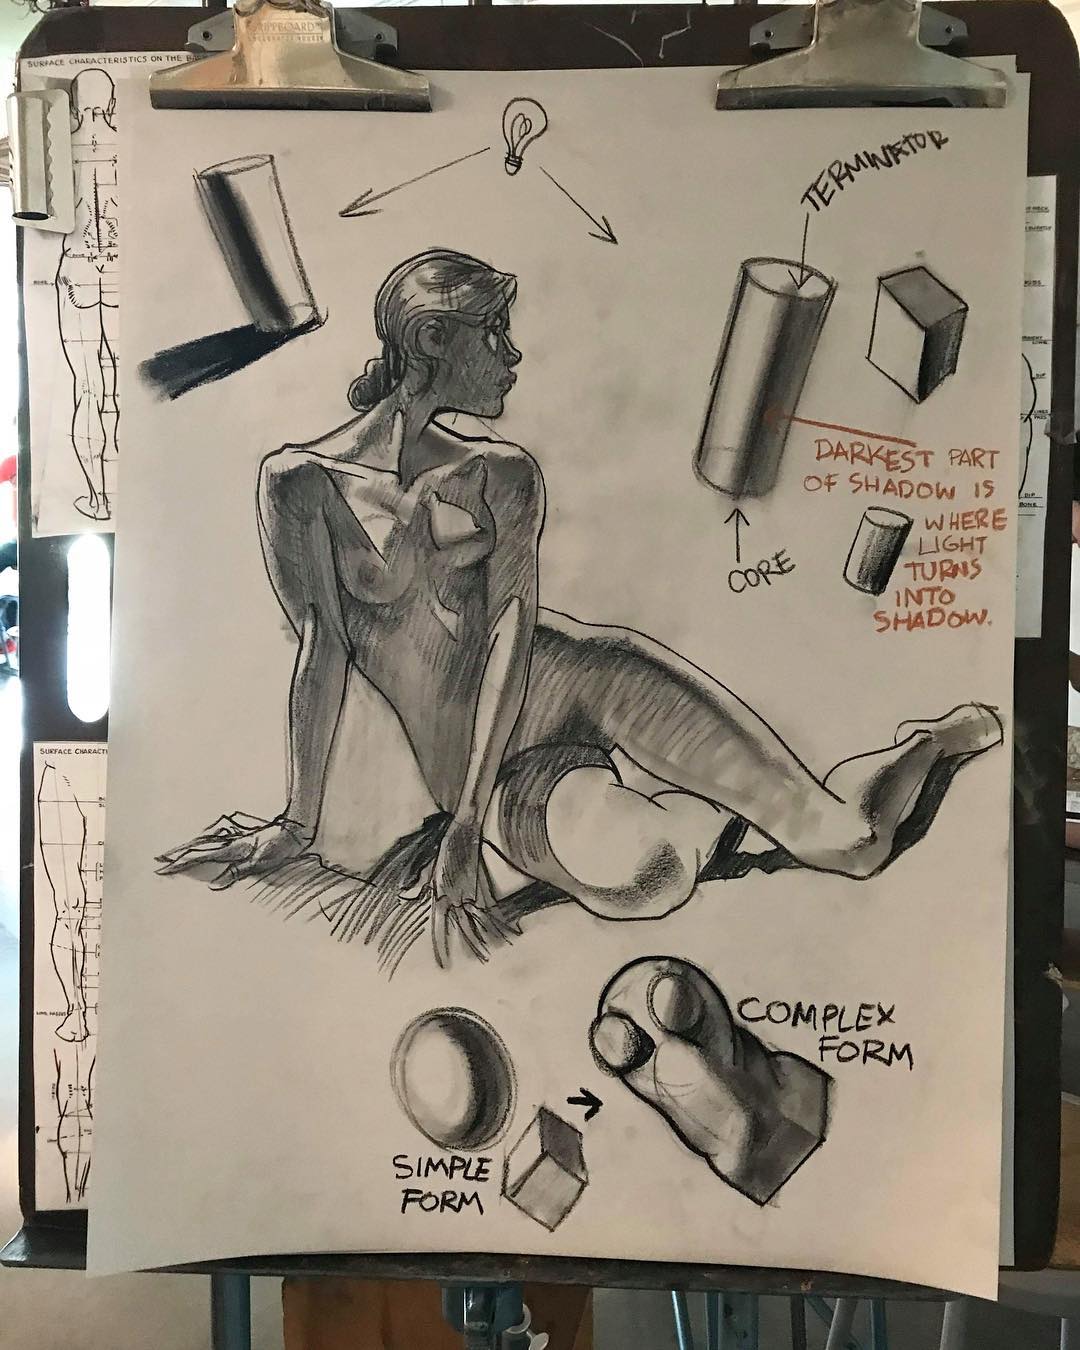 SURFACE CHARACTERISTICS ON THE
TERMINATOR
DARKEST PART
OF SHADOW IS
WHERE
LIGHT
TURNS
INTO
SHADOW.
CORE
SURFACE CHARACT
COMPLEX
FORM
SIMPLE
FORM